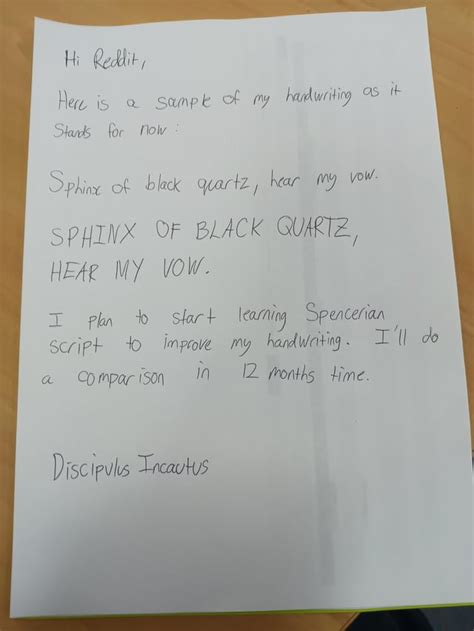 Hi Reddit,
Here is a sample of my handwriting as it
Stands for now:
Sphinx of black quartz, hear my vow.
SPHINX OF BLACK QUARTZ,
HEAR MY VOW.
I plan to start learning Spencerian
script to improve my handwriting. I'll do
a comparison in 12 months time.
Discipulus Incautus